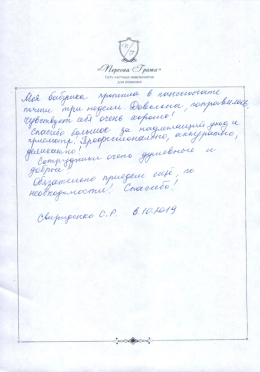 «Территория Границ»
Моя бабушка прожила в пансионате
почти три недели. Довольна, поправилась,
чувствует себя очень хорошо!
Спасибо большое за надлежащий уход и
присмотр. Профессионально, аккуратно,
деликатно!
Сотрудники очень душевные и
добрые!
Обязательно приедем ещё, по
необходимости! Спасибо!
Свириденко С.Р. 8.10.2019